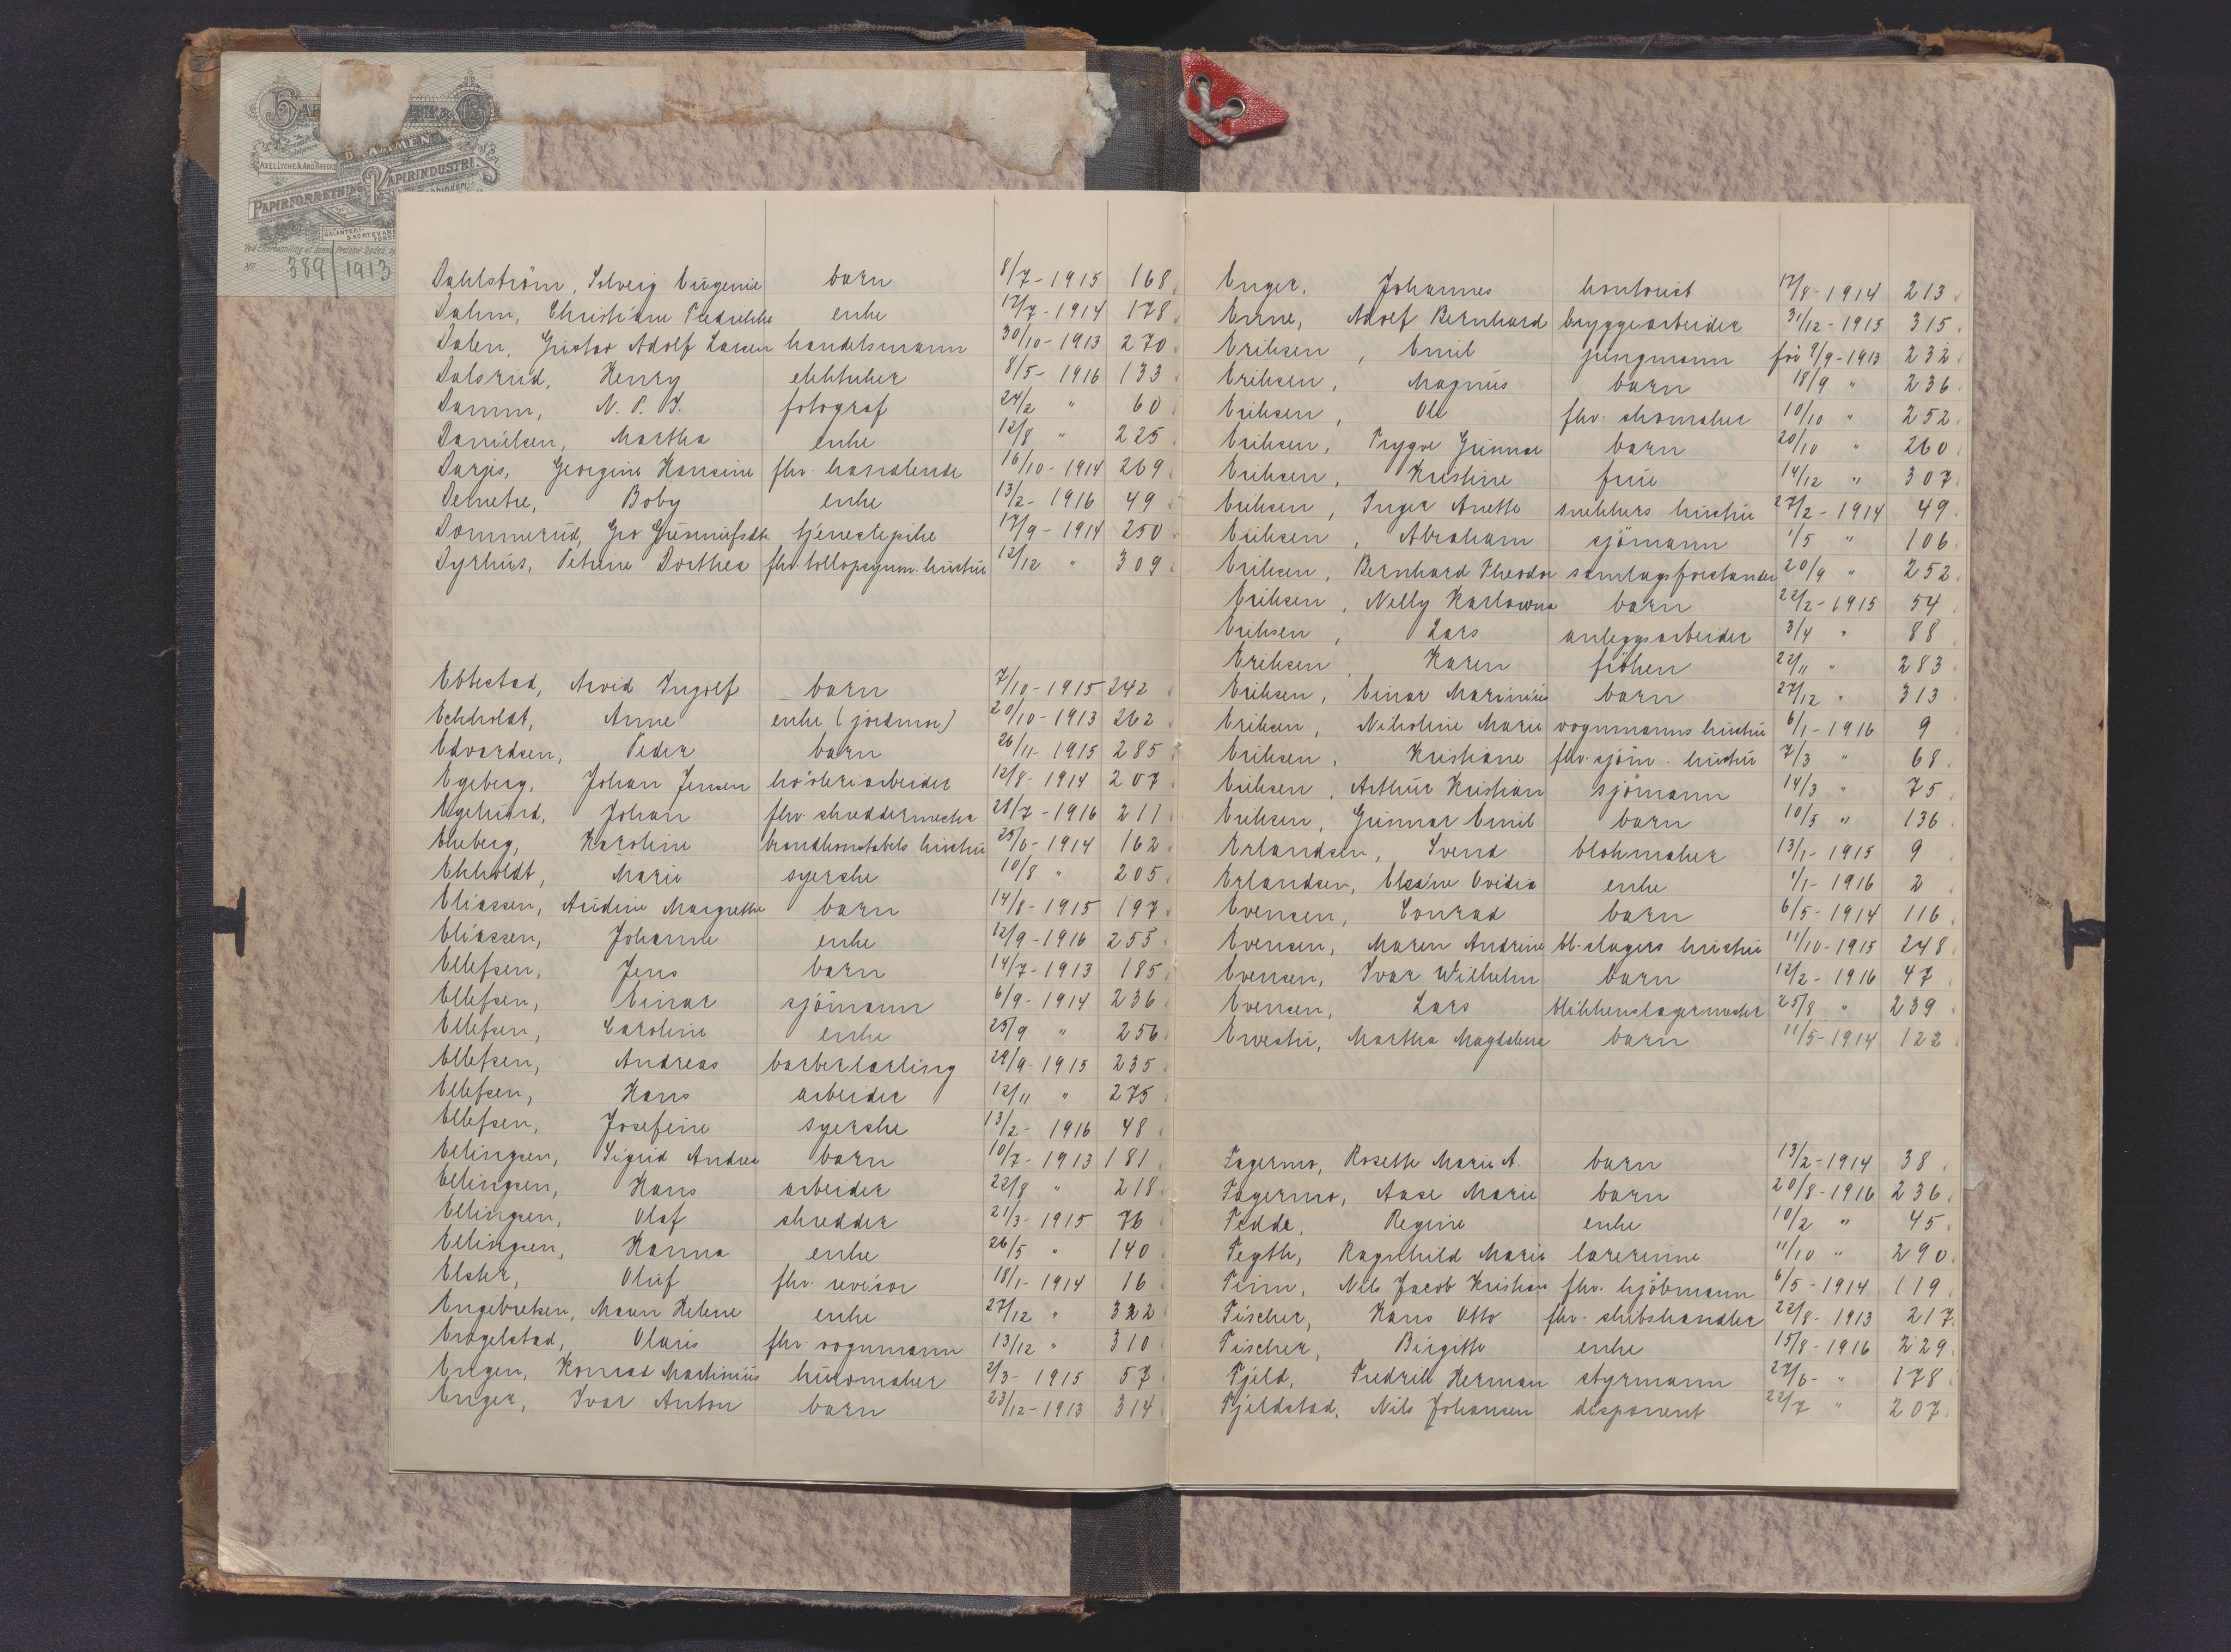 DRAMMEN
AXEL LYCHE & AND. BYECK
PAPIRFORRETNING PAPIRINDUSTRI
GALANTERI- & KORTEVARE
Nº 389 / 1913
Dahlström, Solveig Eugenie barn 8/7-1915 168
Dahm, Christiane Fredrikke enke 17/7-1914 178
Dalen, Gustav Adolf Larsen handelsmann 30/10-1913 270
Dalsrud, Henry elektriker 8/5-1916 133
Damm, N. P. J. fotograf 24/2 " 60
Danielsen, Martha enke 12/8 " 225
Darjes, Georgine Hansine fhv. handlende 16/10-1914 269
Demetre, Boby enke 13/2-1916 49
Dommerud, Gro Gunnufsdtr. tjenestepike 17/9-1914 250
Dyrhus, Petrine Dorthea fhv. tollopsynm. hustru 12/12 " 309
Ebbestad, Arvid Ingolf barn 7/10-1915 242
Eckholdt, Anne enke (jordmor) 20/10-1913 262
Edvardsen, Peder barn 26/11-1915 285
Egeberg, Johan Jensen høvleriarbeider 12/8-1914 207
Egelund, Johan fhv. skreddermester 28/7-1916 211
Ekeberg, Karoline brandkonstabels hustru 25/6-1914 162
Ekholdt, Marie syerske 10/8 " 205
Eliassen, Audine Margrethe barn 14/8-1915 197
Eliassen, Johanne enke 12/9-1916 255
Ellefsen, Jens barn 14/7-1913 185
Ellefsen, Einar sjömann 6/9-1914 236
Ellefsen, Caroline enke 25/9 " 256
Ellefsen, Andreas barberlærling 29/9-1915 235
Ellefsen, Hans arbeider 12/11 " 275
Ellefsen, Josefine syerske 13/2-1916 48
Ellingsen, Sigrid Andrea barn 10/7-1913 181
Ellingsen, Hans arbeider 22/8 " 218
Ellingsen, Olaf skredder 21/3-1915 76
Ellingsen, Hanna enke 26/5 " 140
Elster, Oluf fhv. revisor 18/1-1914 16
Engebretsen, Maren Helene enke 27/12 " 322
Engelstad, Olaus fhv. vognmann 13/12 " 310
Engen, Konrad Martinius huvmaker 2/3-1915 57
Enger, Ivar Anton barn 23/12-1913 314
Enger, Johannes kontorist 17/8-1914 213
Enne, Adolf Bernhard bryggearbeider 31/12-1915 315
Eriksen, Emil jungmann för 9/9-1913 232
Eriksen, Magnus barn 18/9 " 236
Eriksen, Ole fhv. skomaker 10/10 " 252
Eriksen, Trygve Gunnar barn 20/10 " 260
Eriksen, Kristine frue 14/12 " 307
Eriksen, Inger Anette snekkers hustru 27/2-1914 49
Eriksen, Abraham sjömann 1/5 " 106
Eriksen, Bernhard Theodor samlagsforstander 20/9 " 252
Eriksen, Nelly Karlowna barn 22/2-1915 54
Eriksen, Lars anleggsarbeider 3/4 " 88
Eriksen, Karen fröken 22/11 " 283
Eriksen, Einar Marinius barn 27/12 " 313
Eriksen, Nikoline Marie vognmanns hustru 6/1-1916 9
Eriksen, Kristiane fhv. sjöm. hustru 7/3 " 68
Eriksen, Arthur Kristian sjömann 14/3 " 75
Eriksen, Gunnar Emil barn 10/5 " 136
Erlandsen, Svend blokmaker 13/1-1915 9
Erlandsen, Elesine Ovidia enke 1/1-1916 2
Evensen, Conrad barn 6/5-1914 116
Evensen, Maren Andrine bl.slagers hustru 11/10-1915 248
Evensen, Ivar Wilhelm barn 12/2-1916 47
Evensen, Lars blikkenslagermester 25/8 " 239
Ewestu, Martha Magdalena barn 11/5-1914 122
Fagermo, Roseth Marie A. barn 13/2-1914 38
Fagermo, Aase Marie barn 20/8-1916 236
Fedde, Regine enke 10/2 " 45
Fegth, Ragnhild Marie lærerinne 11/10 " 290
Finn, Nils Jacob Kristian fhv. kjöbmann 6/5-1914 119
Fischer, Hans Otto fhv. skibshandler 22/8-1913 217
Fischer, Birgitte enke 15/8-1916 229
Fjeld, Fredrik Herman styrmann 27/6- " 178
Fjeldstad, Nils Johansen disponent 22/7 " 207